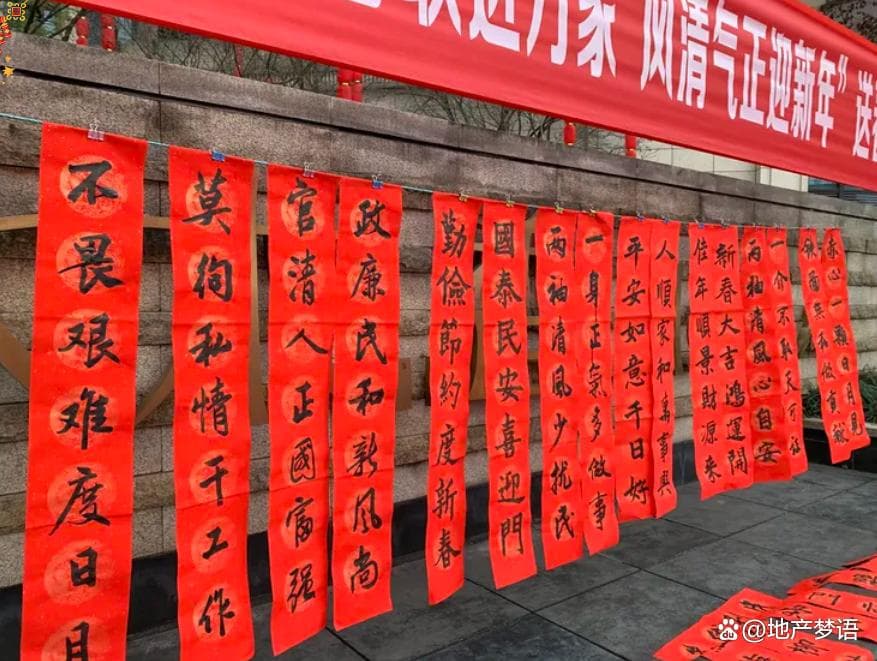 联进万家“风清气正迎新年”送
不畏艰难度日月
莫狥私情干工作
官清人正國富强
政廉民和新风尚
勤儉節約度新春
國泰民安喜迎門
两袖清風少扰民
一身正氣多做事
平安如意千日好
人順家和萬事興
佳年順景財源来
新春大吉鴻運開
两袖清風心自安
一介不取天可
無私做貢献
赤心一颗日月見
@地产梦语